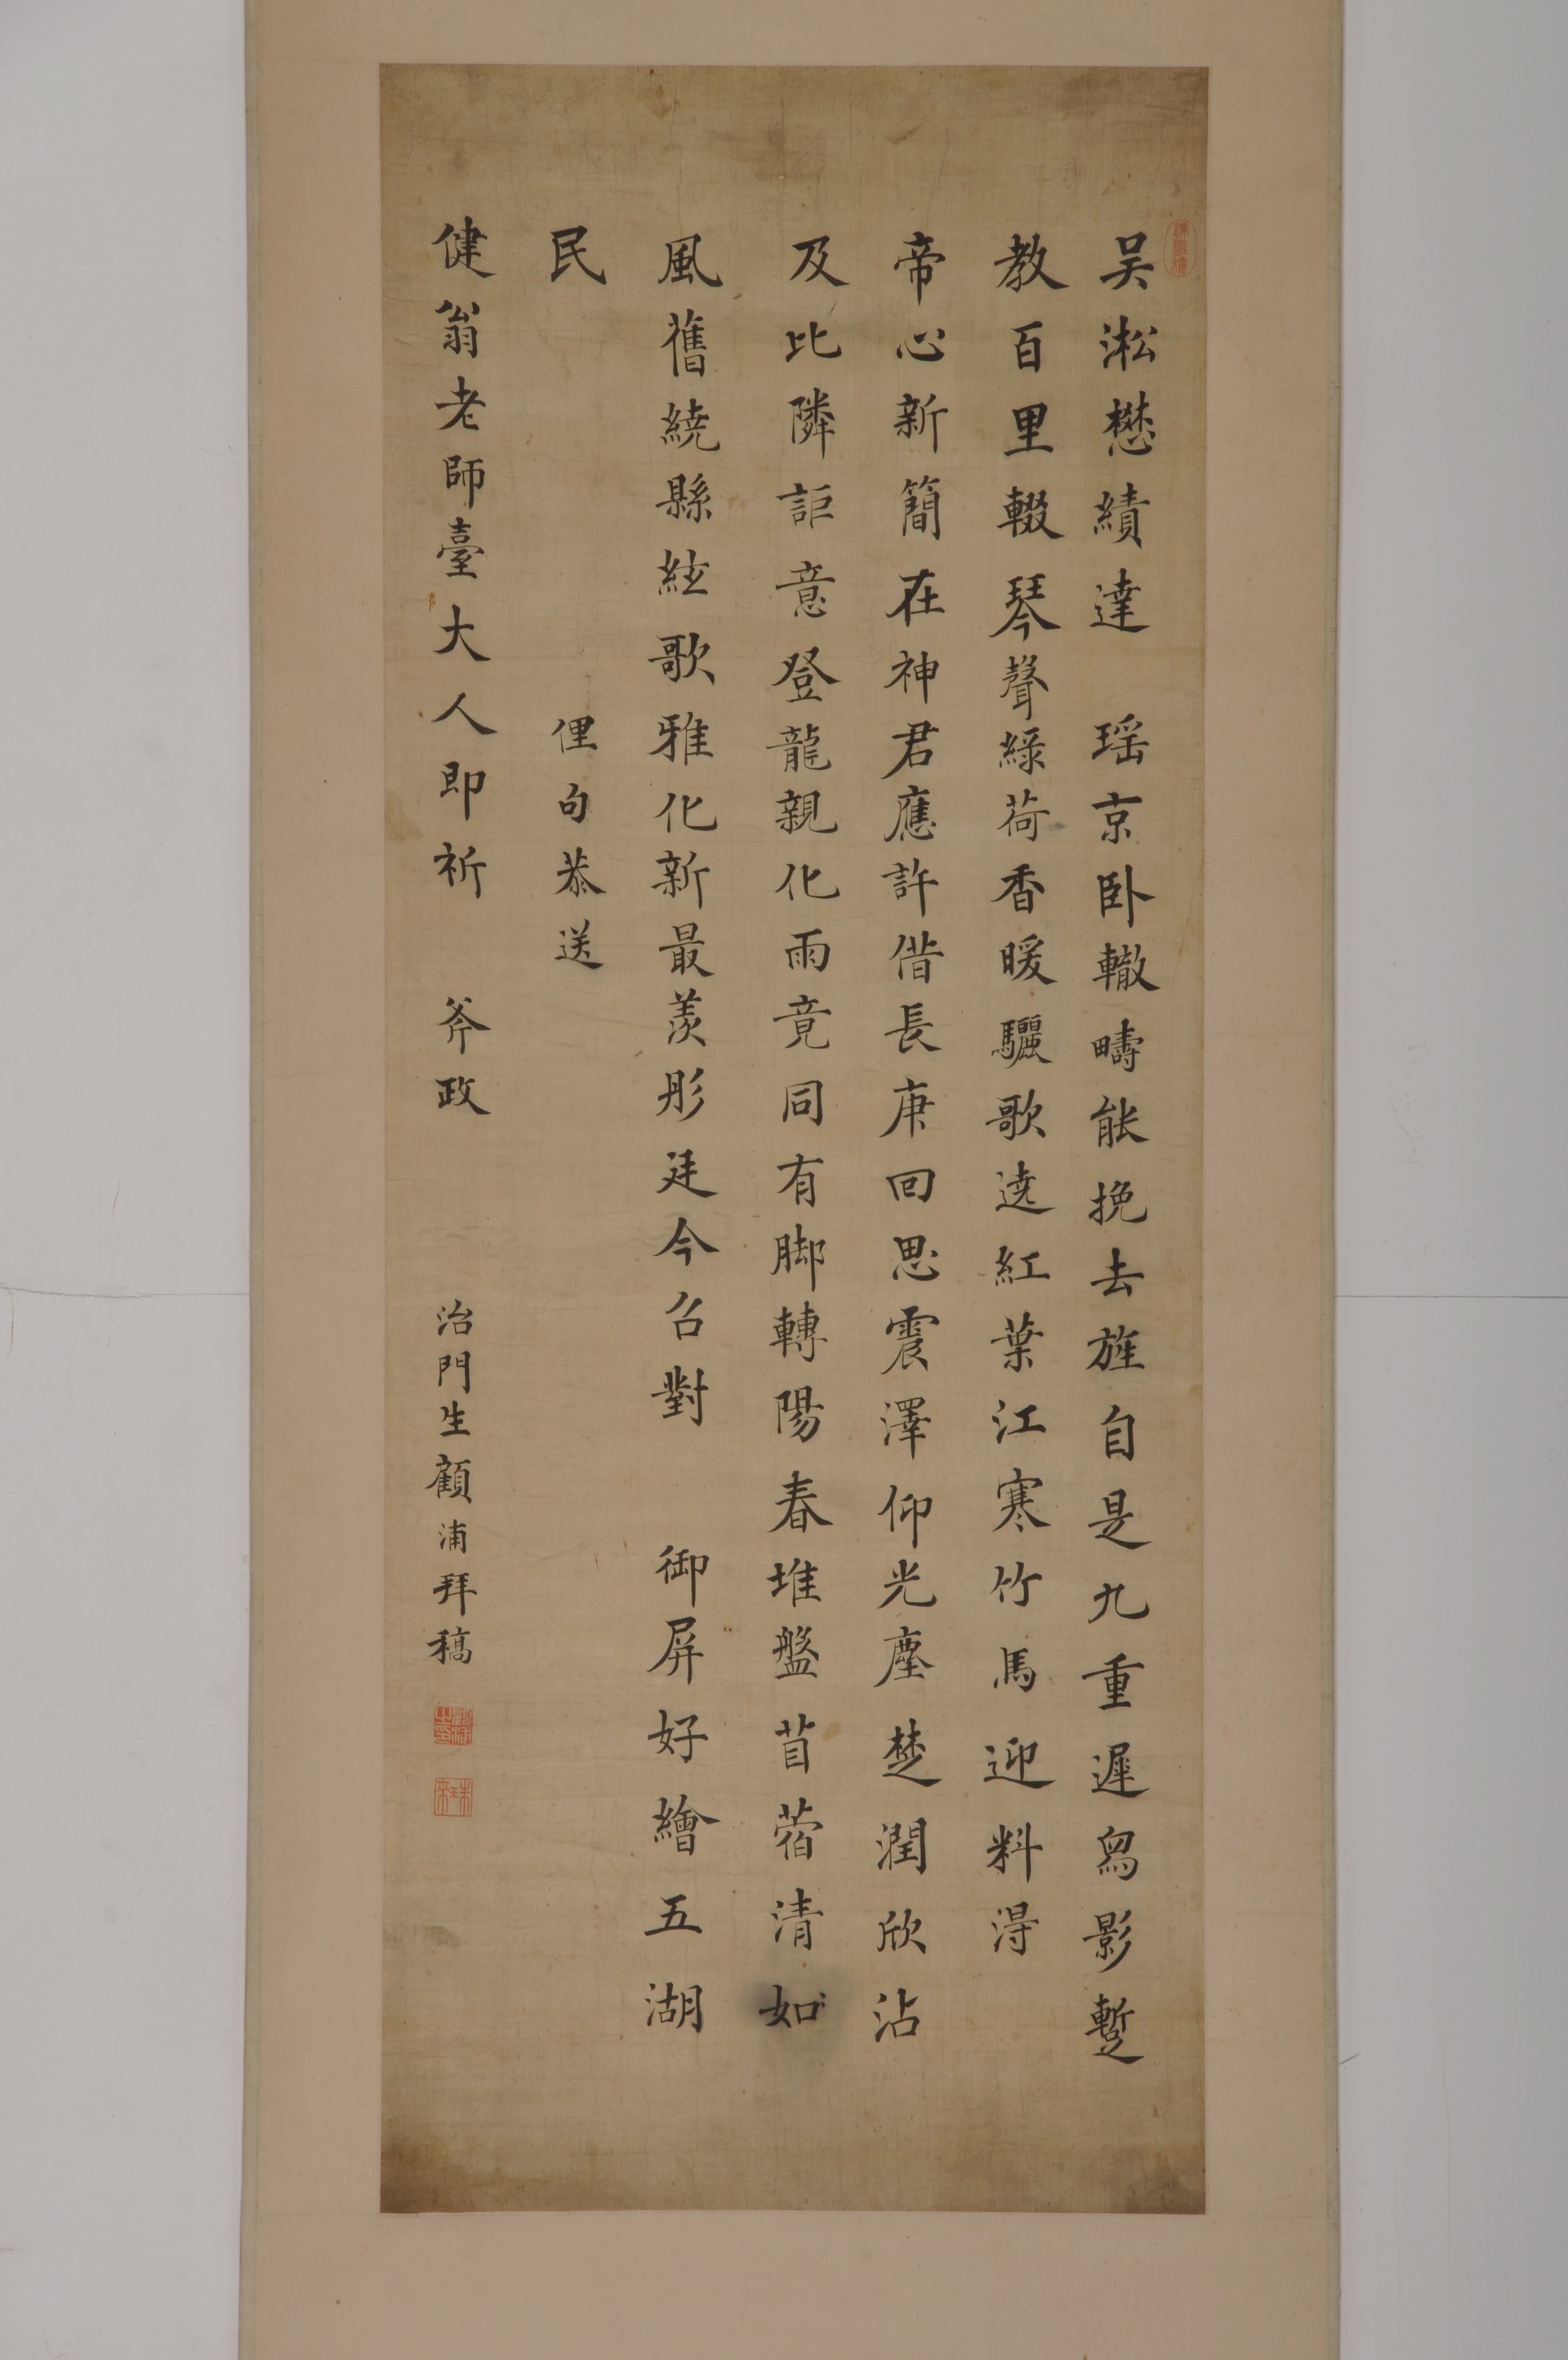 吴淞懋績達　瑶京卧轍疇能挽去旌自是九重遲舄影蹔
教百里輟琴聲綠荷香暖驪歌遶紅葉江寒竹馬迎料淂
帝心新簡在神君應許借長庚回思震澤仰光塵楚潤欣沾
及比隣詎意登龍親化雨竟同有脚轉陽春堆盤苜蓿清如
風舊繞縣絃歌雅化新最羡彤廷今召對　御屏好繪五湖
民
俚句恭送
健翁老師臺大人即祈　斧政
治門生顧浦拜稿